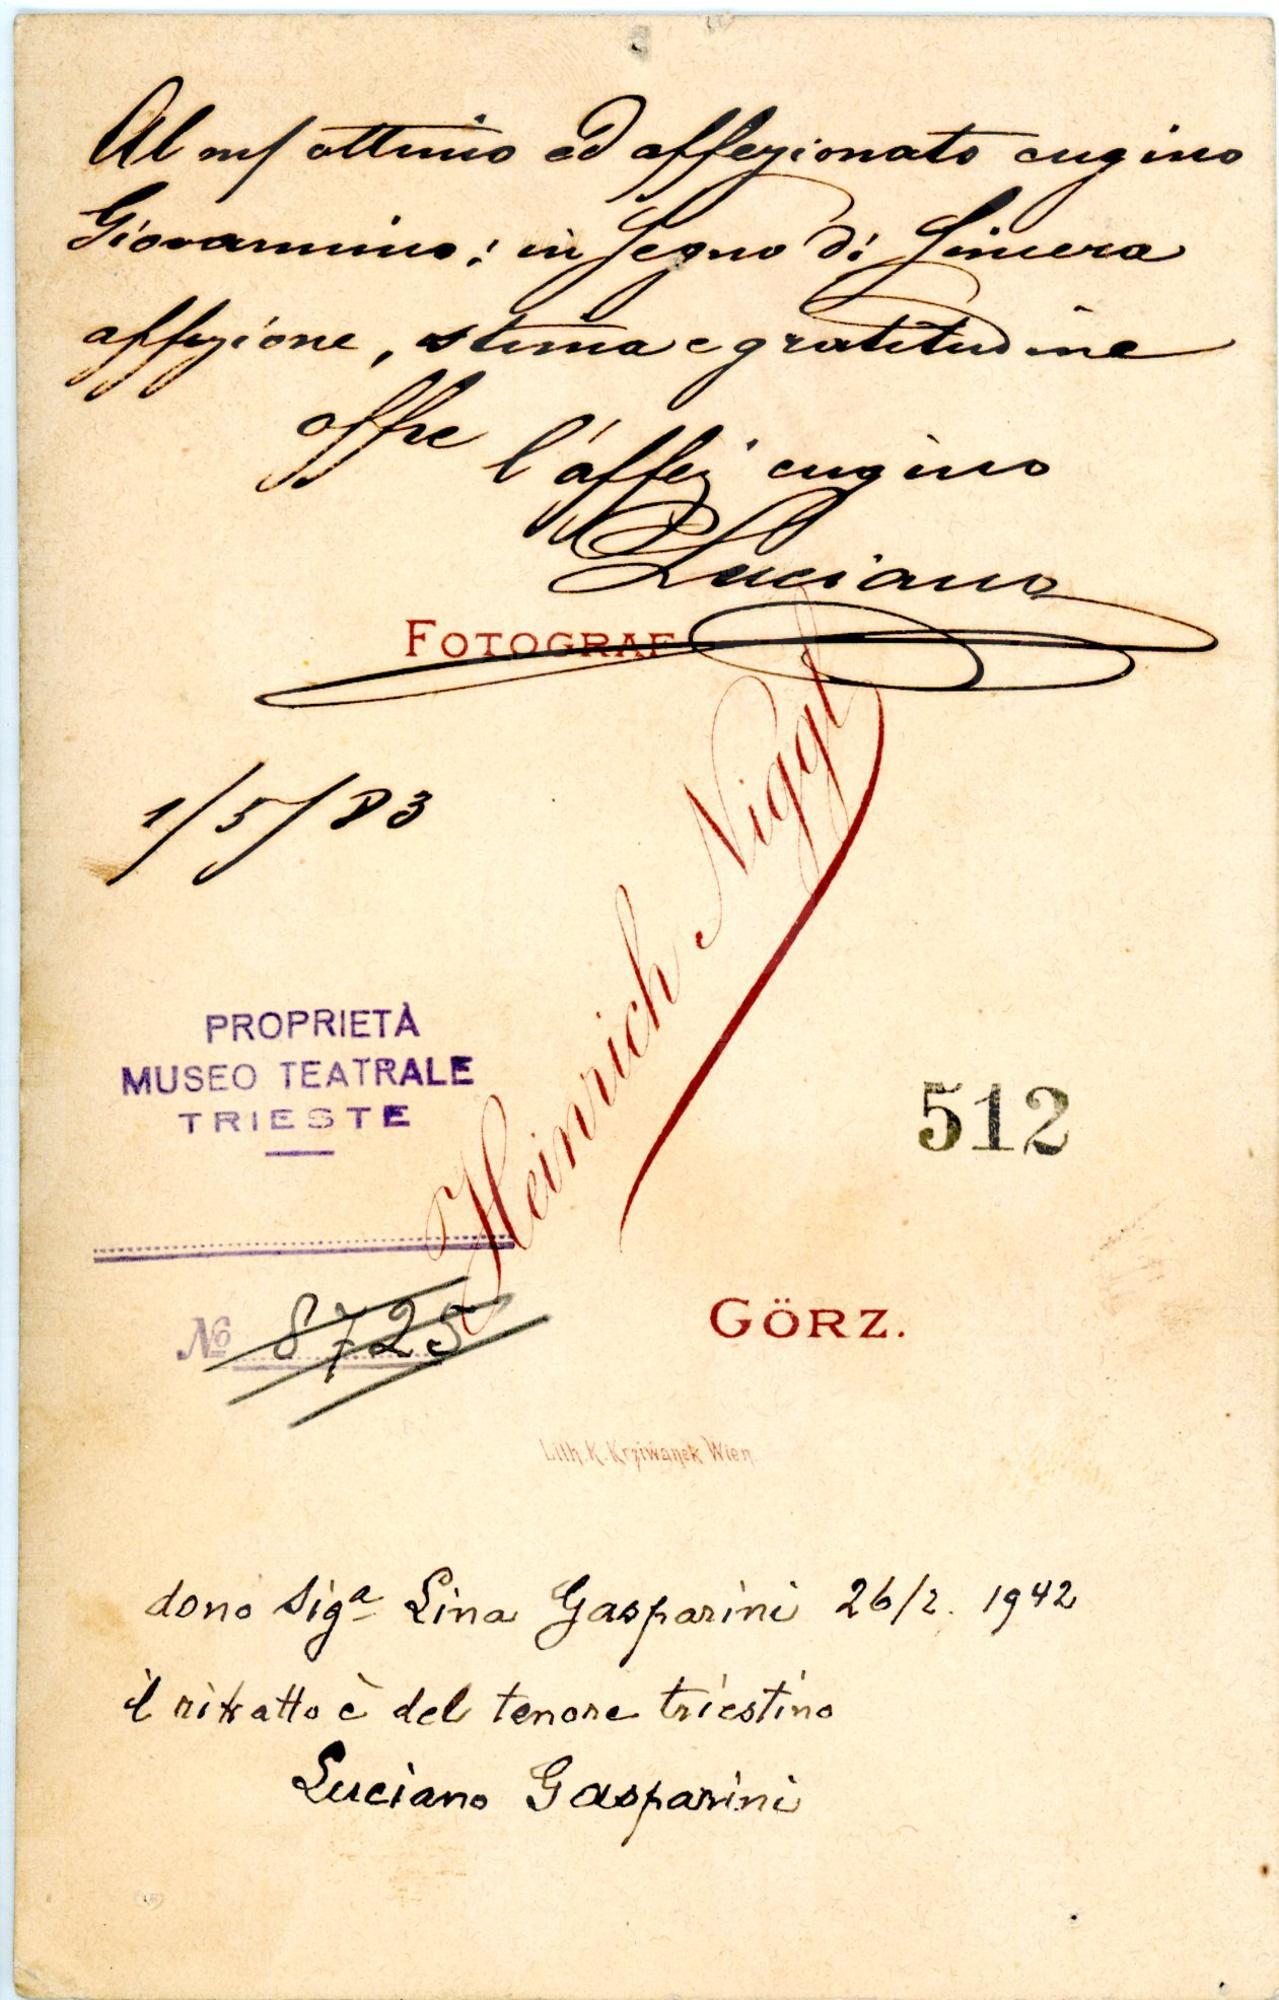 Al ottimo ed affezionato cugino
Giovannino; in segno di sincera
affezione, stima e gratitudine
offre l'affez. cugino
Luciano
FOTOGRAF
1/5/83
Heinrich Niggl
PROPRIETÀ
MUSEO TEATRALE
TRIESTE
512
№ 8725
GÖRZ.
Lith. K. Krziwanek Wien
dono Sigª Lina Gasparini 26/2. 1942
il ritratto è del tenore triestino
Luciano Gasparini